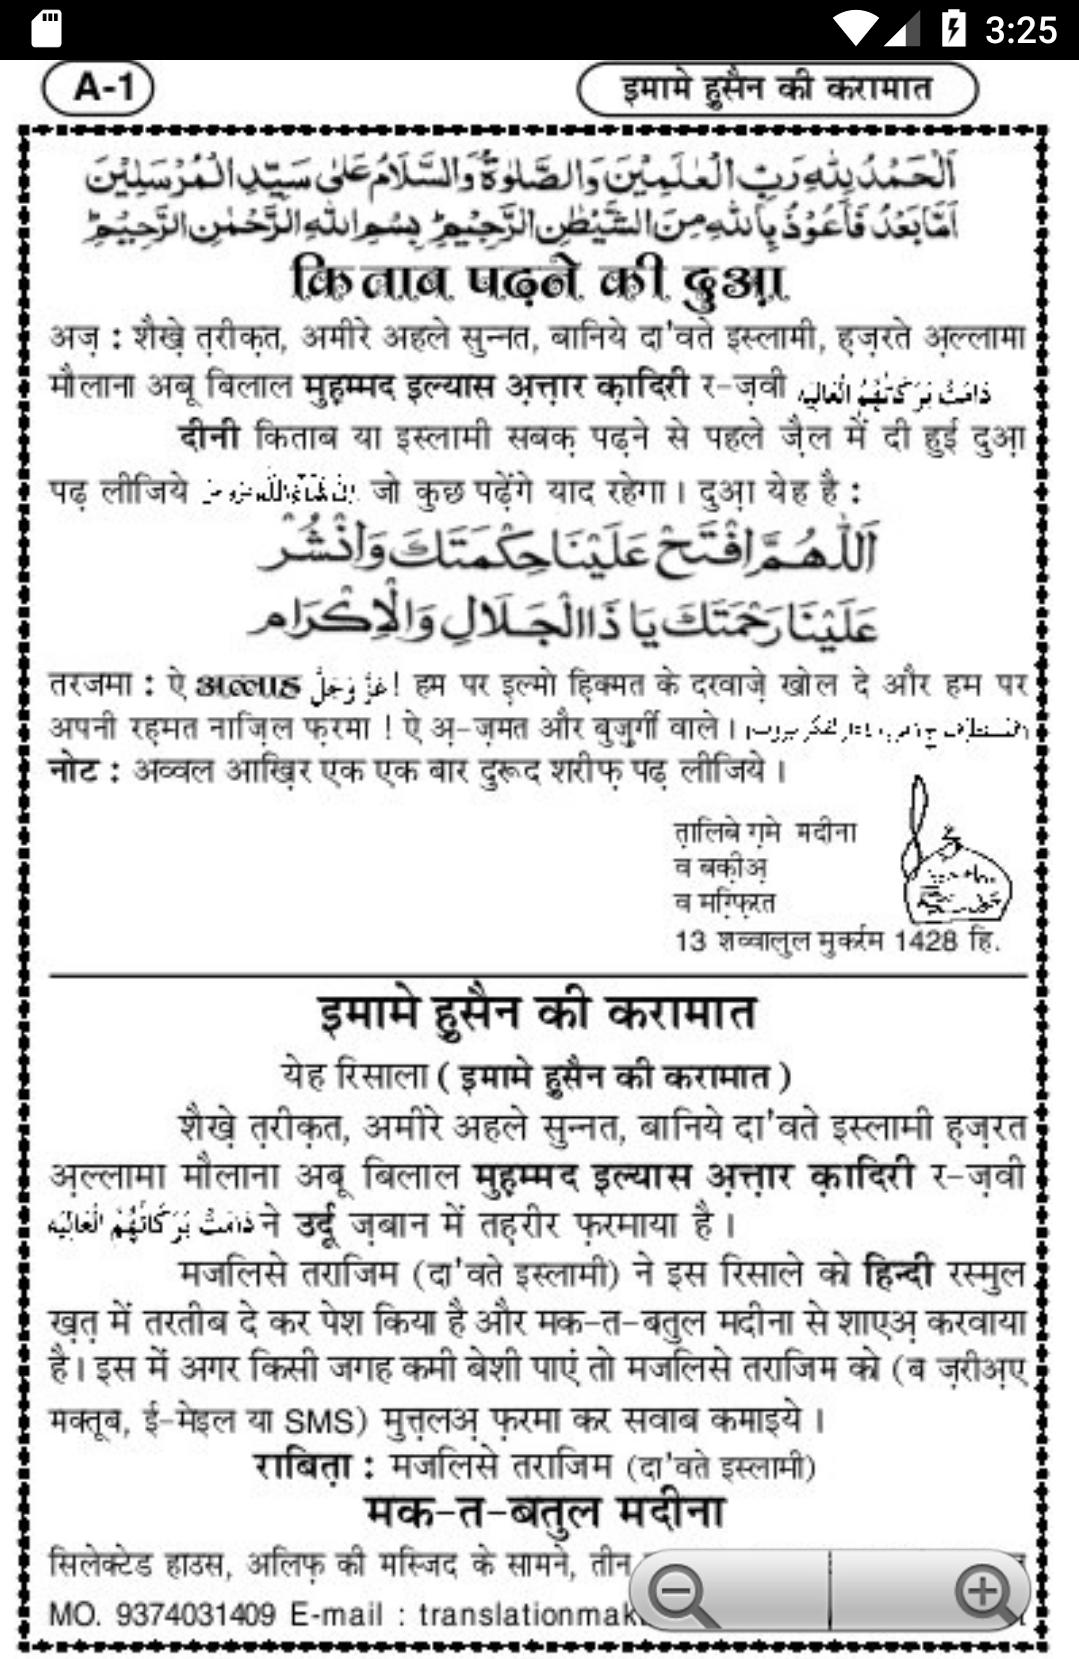 3:25
A-1
इमामे हुसैन की करामात
اَلْحَمْدُ لِلّٰهِ رَبِّ الْعٰلَمِيْنَ وَالصَّلٰوةُ وَالسَّلَامُ عَلٰى سَيِّدِ الْمُرْسَلِيْنَ
اَمَّا بَعْدُ فَاَعُوْذُ بِاللّٰهِ مِنَ الشَّيْطٰنِ الرَّجِيْمِ ؕ بِسْمِ اللّٰهِ الرَّحْمٰنِ الرَّحِيْمِ ؕ
किताब पढ़ने की दुआ़
अज़ : शैखे़ त़रीक़त, अमीरे अहले सुन्नत, बानिये दा'वते इस्लामी, ह़ज़रते अ़ल्लामा
मौलाना अबू बिलाल मुह़म्मद इल्यास अ़त्त़ार क़ादिरी र-ज़वी دَامَتْ بَرَكَاتُهُمُ الْعَالِيَه
दीनी किताब या इस्लामी सबक़ पढ़ने से पहले ज़ैल में दी हुई दुआ़
पढ़ लीजिये اِنْ شَآءَ اللّٰه عَزَّوَجَلَّ जो कुछ पढ़ेंगे याद रहेगा । दुआ़ येह है :
اَللّٰهُمَّ افْتَحْ عَلَيْنَا حِكْمَتَكَ وَانْشُرْ
عَلَيْنَا رَحْمَتَكَ يَا ذَا الْجَلَالِ وَالْاِكْرَام
तरजमा : ऐ अल्लाह عَزَّ وَجَلَّ ! हम पर इ़ल्मो ह़िक्मत के दरवाजे़ खोल दे और हम पर
अपनी रह़मत नाज़िल फ़रमा ! ऐ अ़-ज़मत और बुज़ुर्गी वाले ।
नोट : अव्वल आखि़र एक एक बार दुरूद शरीफ़ पढ़ लीजिये ।
त़ालिबे ग़मे मदीना
व बक़ीअ़
व मग़्फ़िरत
13 शव्वालुल मुकर्रम 1428 हि.
इमामे हुसैन की करामात
येह रिसाला ( इमामे हुसैन की करामात )
शैखे़ त़रीक़त, अमीरे अहले सुन्नत, बानिये दा'वते इस्लामी ह़ज़रत
अ़ल्लामा मौलाना अबू बिलाल मुह़म्मद इल्यास अ़त्त़ार क़ादिरी र-ज़वी
دَامَتْ بَرَكَاتُهُمُ الْعَالِيَه ने उर्दू ज़बान में तह़रीर फ़रमाया है ।
मजलिसे तराजिम (दा'वते इस्लामी) ने इस रिसाले को हिन्दी रस्मुल
ख़त़ में तरतीब दे कर पेश किया है और मक-त-बतुल मदीना से शाएअ़ करवाया
है। इस में अगर किसी जगह कमी बेशी पाएं तो मजलिसे तराजिम को (ब ज़रीअ़ए
मक्तूब, ई-मेइल या SMS) मुत्त़लअ़ फ़रमा कर सवाब कमाइये ।
राबित़ा : मजलिसे तराजिम (दा'वते इस्लामी)
मक-त-बतुल मदीना
सिलेक्टेड हाउस, अलिफ़ की मस्जिद के सामने, तीन
MO. 9374031409 E-mail :